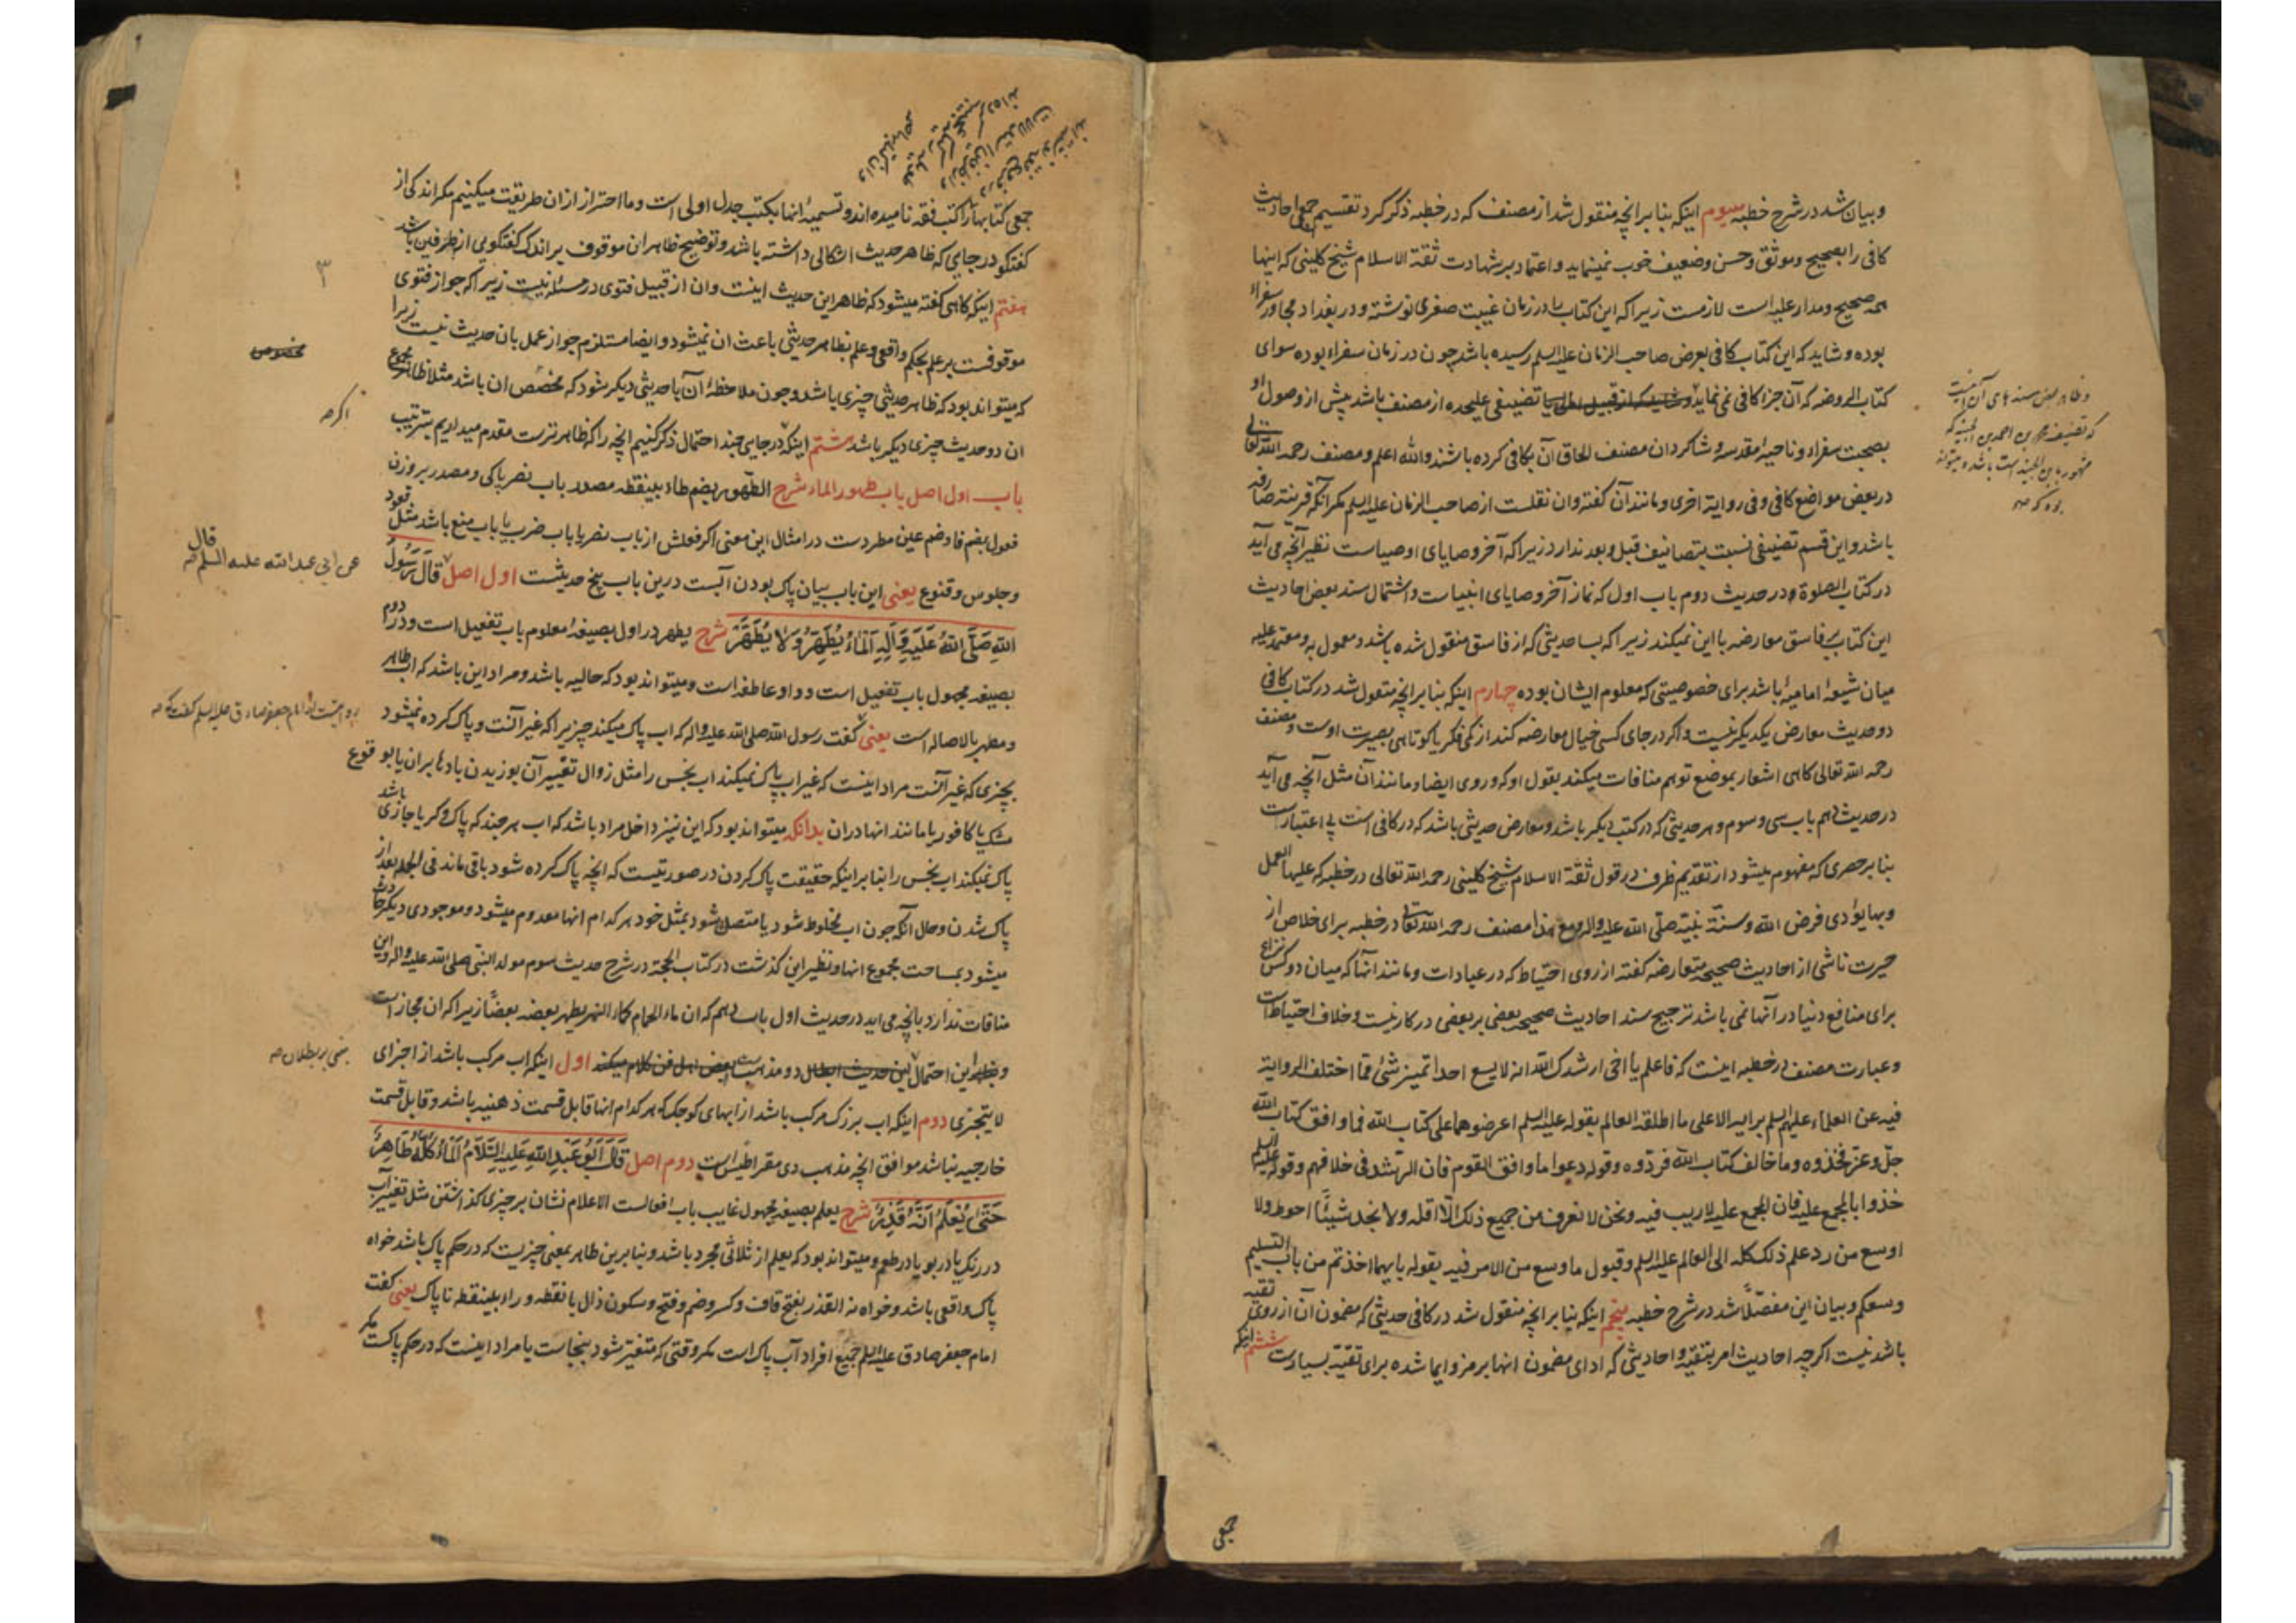 وبیان شد در شرح خطبه سیوم اینکه بنا بر انچه منقول شد از مصنف که در خطبه ذکر کرد تقسیم جمعی احادیث
کافی را بصحیح وموثق وحسن وضعیف خوب نمینماید واعتماد بر شهادت ثقة الاسلام شیخ کلینی که اینها
همه صحیح ومدار علیه است لازمست زیرا که این کتاب را در زمان غیبت صغری نوشته ودر بغداد مجاور سفراء
بوده وشاید که این کتاب کافی بعرض صاحب الزمان علیه السلم رسیده باشد چون در زمان سفراء بوده سوای
کتاب الروضه که آن جزء کافی نمی نماید تصنیفی علیحده از مصنف باشد پیش از وصول او
بصحبت سفراء وناحیهٔ مقدسه وشاکردان مصنف الحاق آن بکافی کرده باشند والله اعلم ومصنف رحمه الله تعالی
در بعض مواضع کافی وفی روایة اخری ومانند آن کفته وان نقلست از صاحب الزمان علیه السلم مکر آنکه قرینه صارفه
باشد واین قسم تصنیفی نسبت بتصانیف قبل وبعد ندارد زیرا که آخر وصایای اوصیاست نظیر آنچه می آید
در کتاب الصلوة در حدیث دوم باب اول که نماز آخر وصایای انبیاست واشتمال سند بعض احادیث
این کتاب بر فاسق معارضه با این نمیکند زیرا که بسا حدیثی که از فاسق منقول شده باشد ومعمول به ومعتمد علیه
میان شیعهٔ امامیه باشد برای خصوصیتی که معلوم ایشان بوده چهارم اینکه بنا بر انچه منقول شد در کتاب کافی
دو حدیث معارض یکدیکر نیست واکر در جای کسی خیال معارضه کند از کمی فکر یا کوتاهی بصیرت اوست ومصنف
رحمه الله تعالی کاهی اشعار بموضع توهم منافات میکند بقول او که وروی ایضا ومانند آن مثل آنچه می آید
در حدیث دهم باب سی وسوم وهر حدیثی که در کتب دیکر باشد ومعارض حدیثی باشد که در کافی است بی اعتبارست
بنا بر حصری که مفهوم میشود از تقدیم ظرف در قول ثقة الاسلام شیخ کلینی رحمه الله تعالی در خطبه که علیها العمل
وبها یؤدی فرض الله وسنة نبیه صلی الله علیه واله ومع هذا مصنف رحمه الله تعالی در خطبه برای خلاص از
حیرت ناشی از احادیث صحیحه متعارضه کفته از روی احتیاط که در عبادات ومانند انها که میان دو کس نزاع
برای منافع دنیا در آنها نمی باشد ترجیح سند احادیث صحیحه بعضی بر بعضی در کار نیست وخلاف احتیاطست
وعبارت مصنف در خطبه اینست که فاعلم یا اخی ارشدک الله انه لایسع احدا تمییز شئ مما اختلف الروایة
فیه عن العلماء علیهم السلم برایه الا علی ما اطلقه العالم بقوله علیه السلم اعرضوهما علی کتاب الله فما وافق کتاب الله
جل وعز فخذوه وما خالف کتاب الله فردوه وقوله دعوا ما وافق القوم فان الرشد فی خلافهم وقوله علیه السلم
خذوا بالمجمع علیه فان المجمع علیه لاریب فیه ونحن لا نعرف من جمیع ذلک الا اقله ولا نجد شیئا احوط ولا
اوسع من رد علم ذلک کله الی العالم علیه السلم وقبول ما وسع من الامر فیه بقوله بایهما اخذتم من باب التسلیم
وسعکم وبیان این مفصلاً شد در شرح خطبه پنجم اینکه بنا بر انچه منقول شد در کافی حدیثی که مضمون آن از روی تقیه
باشد نیست اکرچه احادیث امر بتقیه واحادیثی که ادای مضمون انها برمز وایما شده برای تقیه بسیارست ششم اینکه
جمعی
جمعی کتابها را کتب فقه نامیده اند وتسمیهٔ انها بکتب جدل اولی است وما احتراز از ان طریقت میکنیم مکر اندکی از
کفتکو در جایی که ظاهر حدیث اشکالی داشته باشد وتوضیح ظاهر ان موقوف بر اندک کفتکویی از طرفین باشد
هفتم اینکه کاهی کفته میشود که ظاهر این حدیث اینست وان از قبیل فتوی در مسئله نیست زیرا که جواز فتوی
موقوفست بر علم بحکم واقعی وعلم بظاهر حدیثی باعث ان نمیشود وایضا مستلزم جواز عمل بان حدیث نیست زیرا
که میتواند بود که ظاهر حدیثی چیزی باشد وچون ملاحظهٔ آن با حدیثی دیکر شود که مخصص ان باشد مثلا ظاهر مجموع
ان دو حدیث چیزی دیکر باشد هشتم اینکه در جایی چند احتمال ذکر کنیم انچه را که ظاهرترست مقدم میداریم بترتیب
باب اول اصل باب طهور الماء شرح الطهور بضم طاء بینقطه مصدر باب نصر پاکی ومصدر بر وزن
فعول بضم فا وضم عین مطردست در امثال این معنی اکر فعلش از باب نصر یا باب ضرب یا باب منع باشد مثل قعود
وجلوس وقنوع یعنی این باب بیان پاک بودن آبست درین باب پنج حدیثست اول اصل قَالَ رَسُولُ
اللهِ صَلَّى اللهُ عَلَيْهِ وَآلِهِ اَلْمَاءُ يُطَهِّرُ وَلَا يُطَهَّرُ شرح یطهر در اول بصیغهٔ معلوم باب تفعیل است ودر دوم
بصیغه مجهول باب تفعیل است وواو عاطفه است ومیتواند بود که حالیه باشد ومراد این باشد که اب طاهر
ومطهر بالاصاله است یعنی کفت رسول الله صلی الله علیه واله که اب پاک میکند چیزیرا که غیر آنست وپاک کرده نمیشود
بچیزی که غیر آنست مراد اینست که غیر اب پاک نمیکند اب نجس را مثل زوال تغییر آن بوزیدن بادها بران یا بوقوع
مشک یا کافور یا مانند انها در ان بدانکه میتواند بود که این نیز داخل مراد باشد که اب هر چند که پاک وکر یا جاری باشد
پاک نمیکند اب نجس را بنا بر اینکه حقیقت پاک کردن در صورتیست که انچه پاک کرده شود باقی ماند فی الجمله بعد از
پاک شدن وحال آنکه چون اب مخلوط شود یا متصل شود بمثل خود هر کدام انها معدوم میشود وموجودی دیکر حادث
میشود بمساحت مجموع انها ونظیر این کذشت در کتاب الحجة در شرح حدیث سوم مولد النبی صلی الله علیه واله واین
منافات ندارد بانچه می اید در حدیث اول باب دهم که ان ماء الحمام کماء النهر یطهر بعضه بعضاً زیرا که ان مجاز است
این احتمال دو مذهب اول اینکه اب مرکب باشد از اجزای
لا یتجزی دوم اینکه اب بزرک مرکب باشد از ابهای کوچک که هر کدام انها قابل قسمت ذهنیه باشد وقابل قسمت
خارجیه نباشد موافق انچه مذهب ذی مقراطیس است دوم اصل قَالَ اَبُو عَبْدِ اللهِ عَلَيْهِ السَّلَامُ اَلْمَاءُ كُلُّهُ طَاهِرٌ
حَتَّى يُعْلَمَ اَنَّهُ قَذِرٌ شرح یعلم بصیغه مجهول غایب باب افعالست الاعلام نشان بر چیزی کذاشتن مثل تغییر آب
در رنک یا در بو یا در طعم ومیتواند بود که یعلم از ثلاثی مجرد باشد وبنا برین طاهر بمعنی چیزیست که در حکم پاک باشد خواه
پاک واقعی باشد وخواه نه القذر بفتح قاف وکسر وضم وفتح وسکون ذال بانقطه وراء بینقطه ناپاک یعنی کفت
امام جعفر صادق علیه السلم جمیع افراد آب پاک است مکر وقتی که متغیر شود بنجاست یا مراد اینست که در حکم پاکست مکر
۳
مخصوص
اکرچه
قال
عن ابی عبد الله علیه السلم
روایتست از امام جعفر صادق علیه السلم کفت که
مبنی بر بطلان